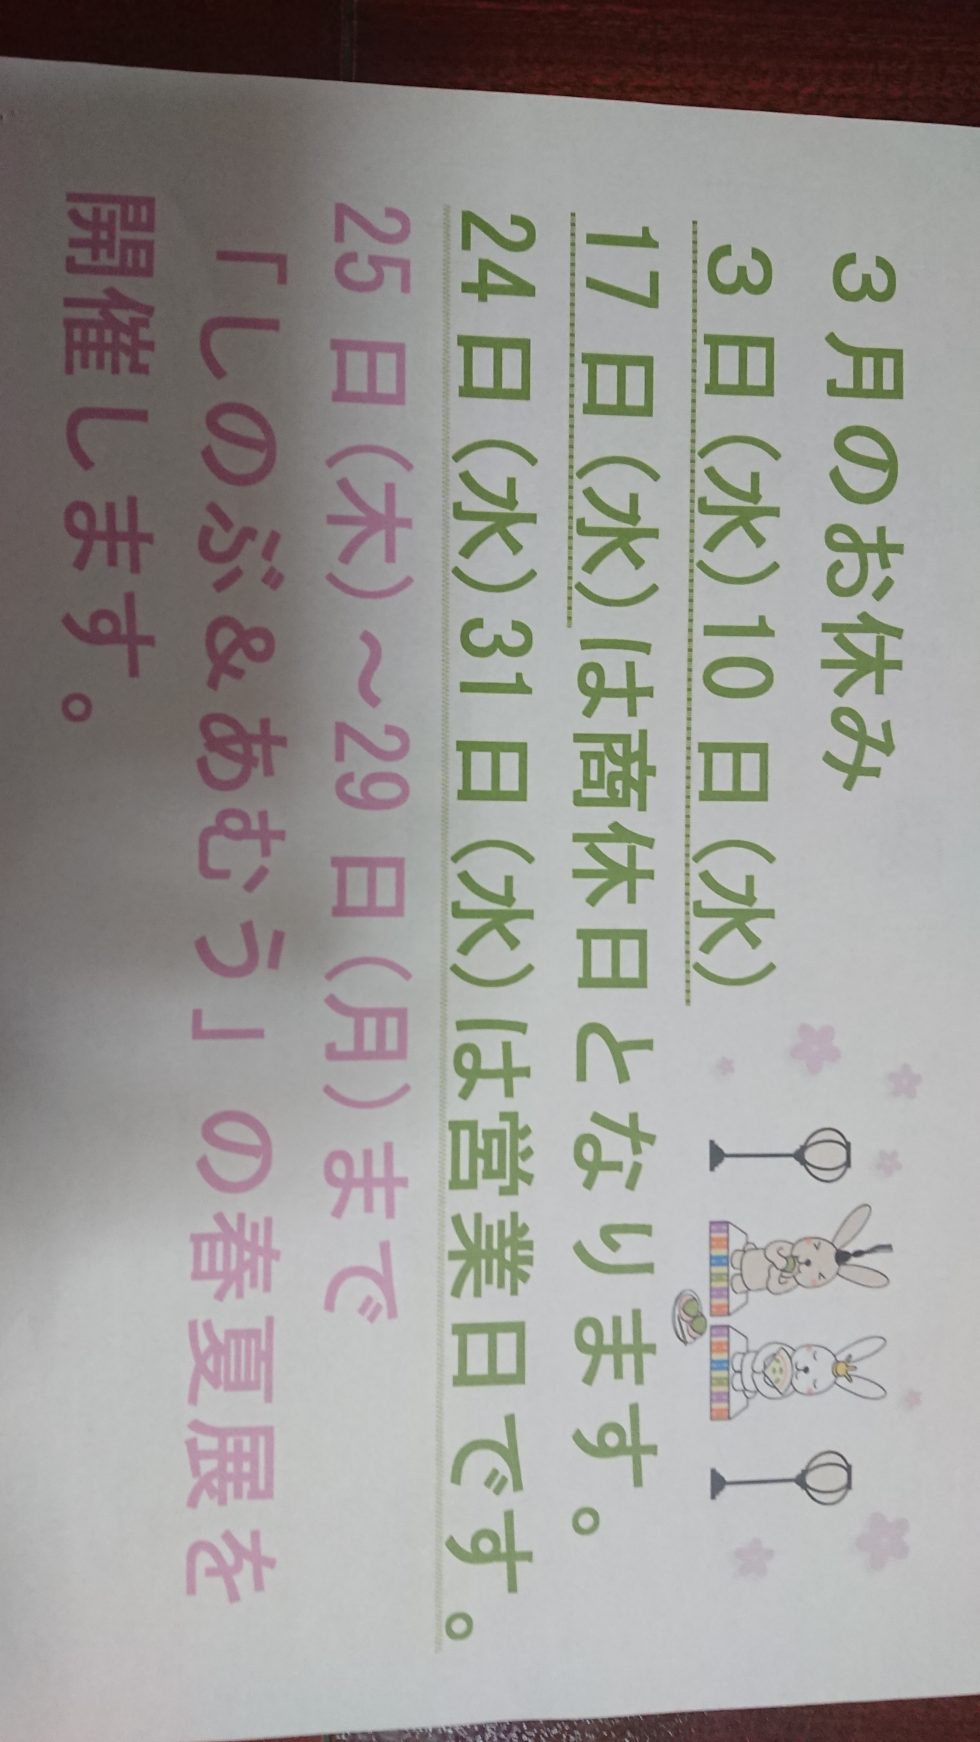 3月のお休み
3日(水)10日(水)
17日(水)は商休日となります。
24日(水)31日(水)は営業日です。
25日(木)～29日(月)まで
「しのぶ&あむう」の春夏展を
開催します。